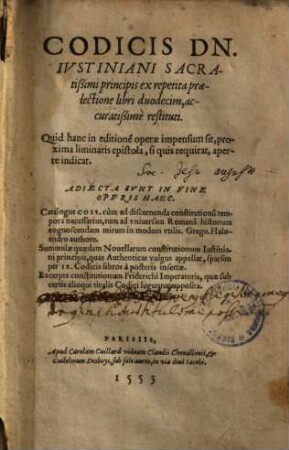 CODICIS DN.
IVSTINIANI SACRA-
tißimi principis ex repetita præ-
lectione libri duodecim, ac-
curatißimè restituti.
Quid hanc in editionē operæ impensum sit, pro-
xima liminaris epistola, si quis requirat, aper-
te indicat.
Soc. Jesu
ADIECTA SVNT IN FINE
OPERIS HAEC.
Catalogus COSS. cùm ad discernenda constitutionū tem-
pora necessarius, tum ad vniuersam Romanā historiam
cognoscendam mirum in modum vtilis, Grego. Halo-
andro authore.
Summulæ quædam Nouellarum constitutionum Iustinia-
ni principis, quas Authenticas vulgus appellat, sparsim
per IX. Codicis libros à posteris insertæ.
Excerpta constitutionum Friderichi Imperatoris, quæ sub
certis aliquot titulis Codici leguntur apposita.
PARISIIS,
Apud Carolam Guillard viduam Claudii Cheuallonii, &
Gulielmum Desboys, sub sole aureo, in via diui Iacobi.
1553